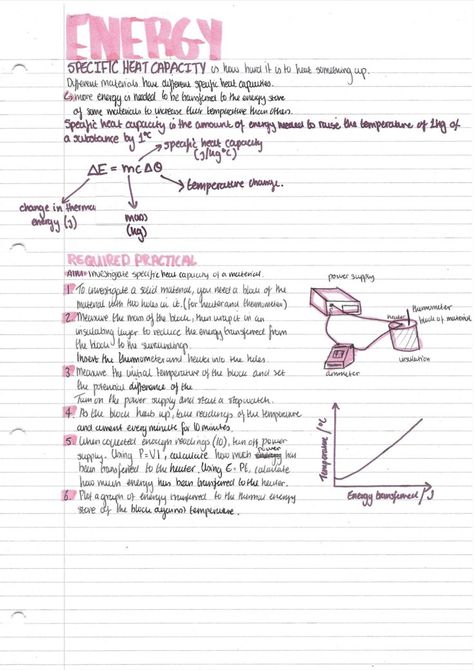 ENERGY
SPECIFIC HEAT CAPACITY is how hard it is to heat something up.
Different materials have different specific heat capacities.
↳ more energy is needed to be transferred to the energy store
of some materials to increase their temperature than others.
Specific heat capacity is the amount of energy needed to raise the temperature of 1kg of
a substance by 1°C
specific heat capacity
(J/kg°C)
ΔE = mcΔΘ
temperature change.
change in thermal
energy (J)
mass
(kg)
REQUIRED PRACTICAL
AIM: Investigate specific heat capacity of a material.
1 To investigate a solid material, you need a block of the
material with two holes in it. (for heater and thermometer)
2 Measure the mass of the block, then wrap it in an
insulating layer to reduce the energy transferred from
the block to the surroundings.
Insert the thermometer and heater into the holes.
3 Measure the initial temperature of the block and set
the potential difference of the
Turn on the power supply and start a stopwatch.
4. As the block heats up, take readings of the temperature
and current every minute for 10 minutes.
5. When collected enough readings (10), turn off power
supply. Using P=VI, calculate how much power has
been transferred to the heater. Using E=Pt, calculate
how much energy has been transferred to the heater.
6. Plot a graph of energy transferred to the thermal energy
store of the block against temperature.
power supply
thermometer
heater
block of material
insulation
ammeter
Temperature / °C
Energy transferred / J